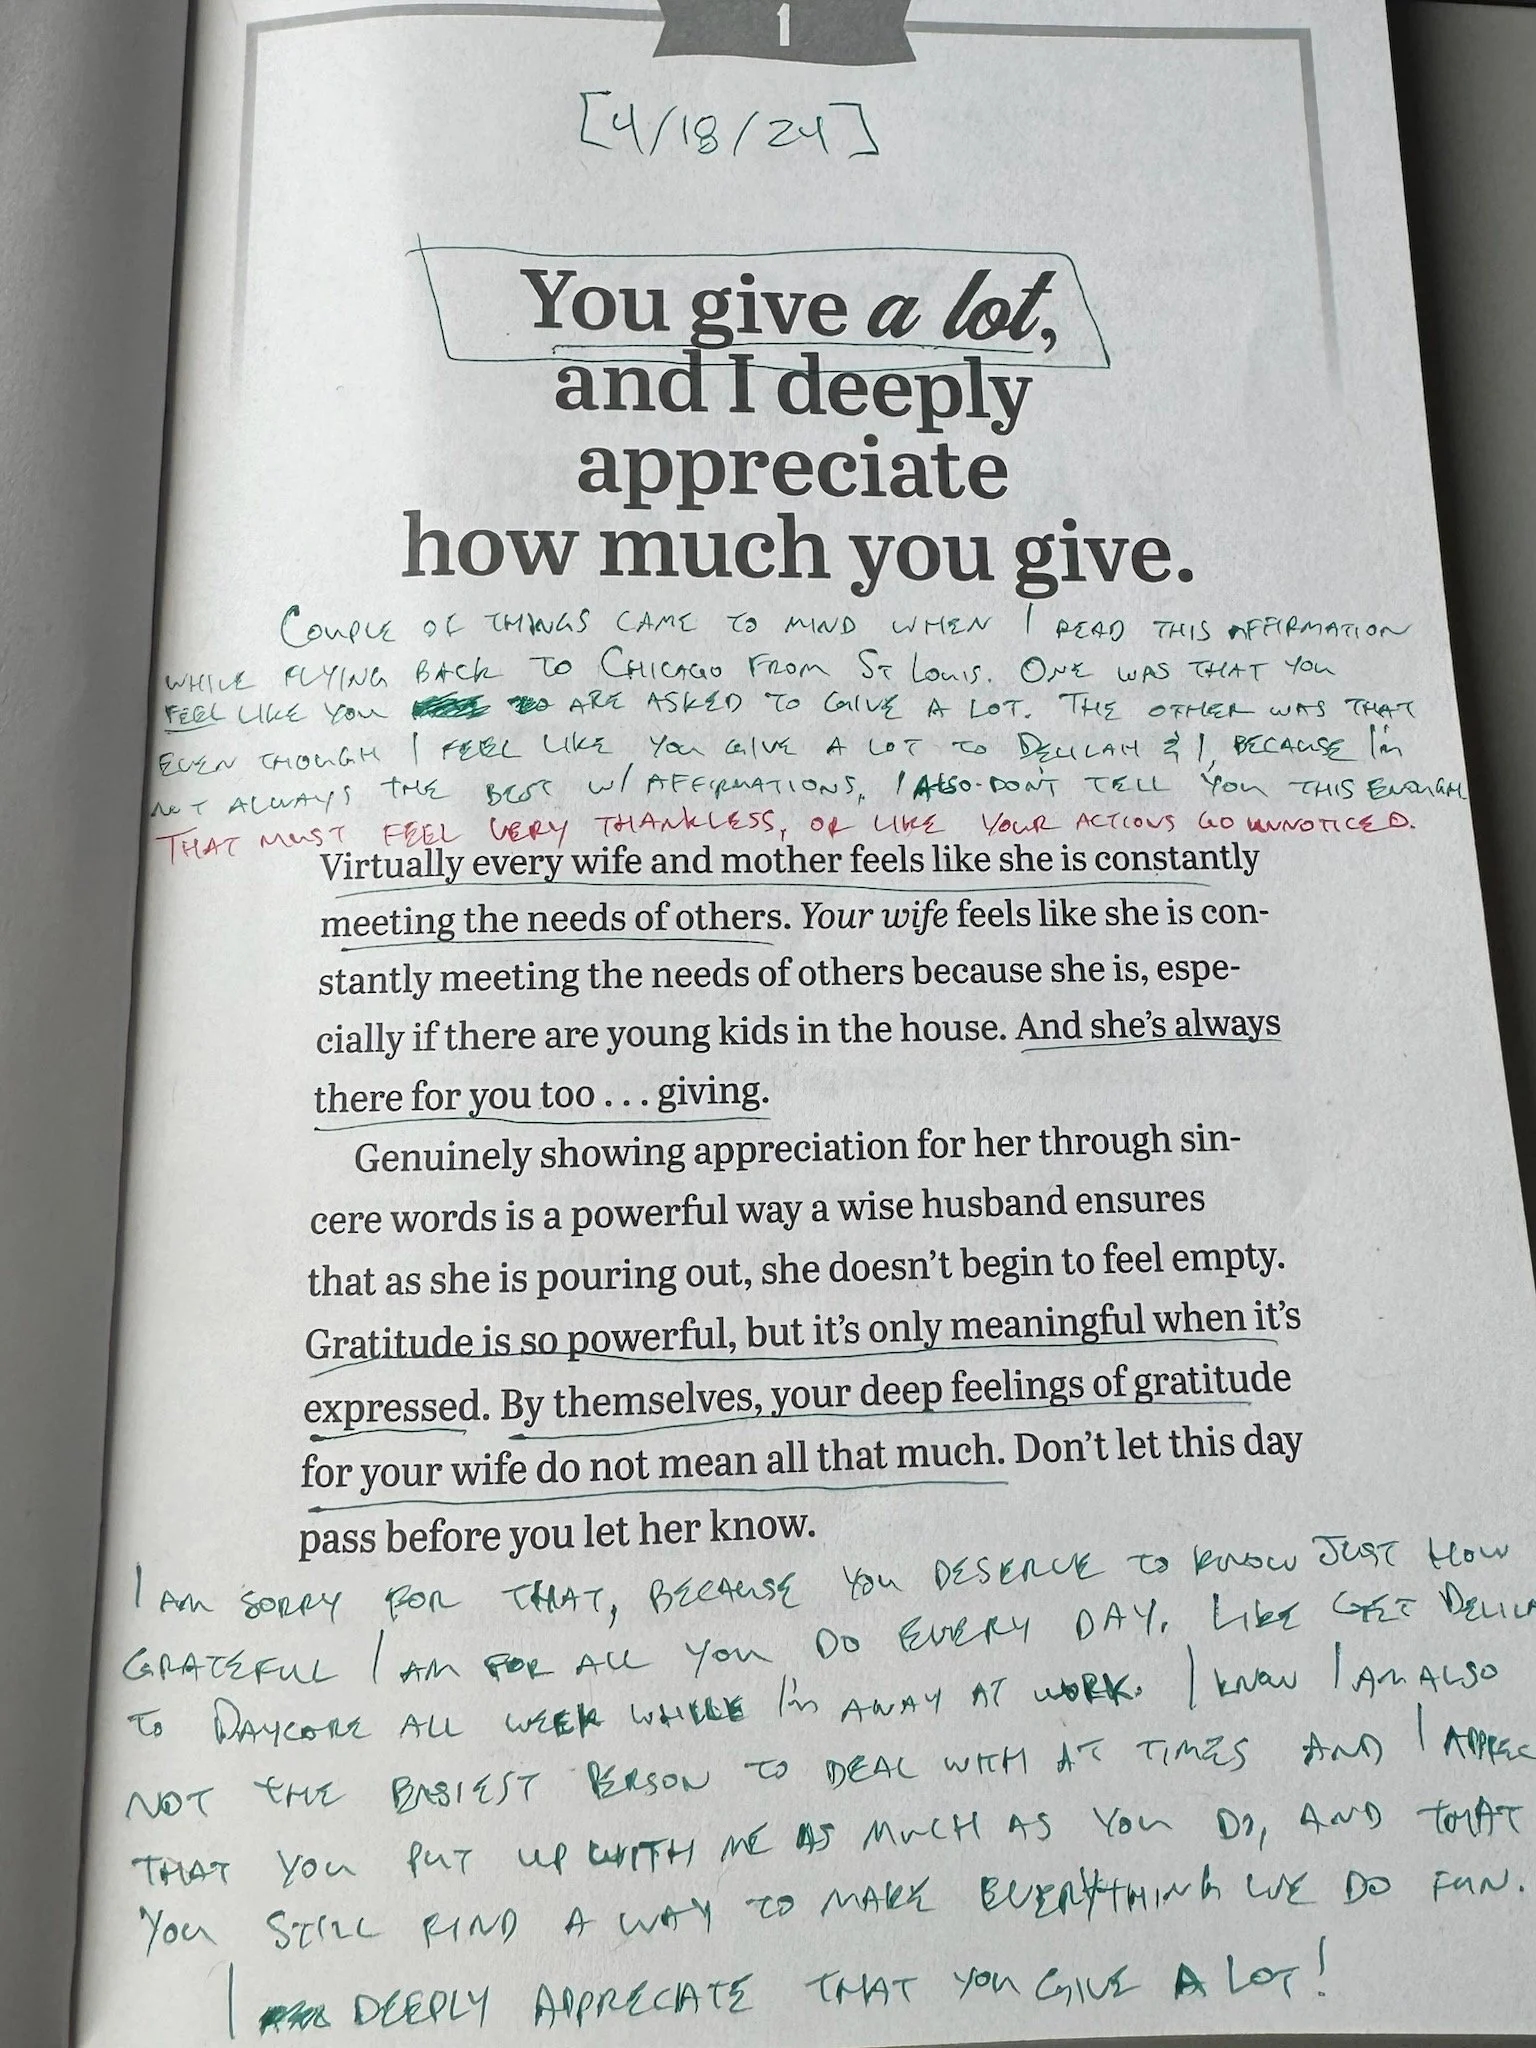 1
[4/18/24]
You give a lot,
and I deeply
appreciate
how much you give.
COUPLE OF THINGS CAME TO MIND WHEN I READ THIS AFFIRMATION
WHILE FLYING BACK TO CHICAGO FROM ST LOUIS. ONE WAS THAT YOU
FEEL LIKE YOU ARE ASKED TO GIVE A LOT. THE OTHER WAS THAT
EVEN THOUGH I FEEL LIKE YOU GIVE A LOT TO DELILAH & I, BECAUSE I'm
NOT ALWAYS THE BEST W/ AFFIRMATIONS, I ALSO DON'T TELL YOU THIS ENOUGH
THAT MUST FEEL VERY THANKLESS, OR LIKE YOUR ACTIONS GO UNNOTICED.
Virtually every wife and mother feels like she is constantly
meeting the needs of others. Your wife feels like she is con-
stantly meeting the needs of others because she is, espe-
cially if there are young kids in the house. And she's always
there for you too . . . giving.
Genuinely showing appreciation for her through sin-
cere words is a powerful way a wise husband ensures
that as she is pouring out, she doesn't begin to feel empty.
Gratitude is so powerful, but it's only meaningful when it's
expressed. By themselves, your deep feelings of gratitude
for your wife do not mean all that much. Don't let this day
pass before you let her know.
I AM SORRY FOR THAT, BECAUSE YOU DESERVE TO KNOW JUST HOW
GRATEFUL I AM FOR ALL YOU DO EVERY DAY. LIKE GET DELILA
TO DAYCARE ALL WEEK WHILE I'm AWAY AT WORK. I KNOW I AM ALSO
NOT THE EASIEST PERSON TO DEAL WITH AT TIMES AND I APPREC
THAT YOU PUT UP WITH ME AS MUCH AS YOU DO, AND THAT
YOU STILL FIND A WAY TO MAKE EVERYTHING WE DO FUN.
I DEEPLY APPRECIATE THAT YOU GIVE A LOT!